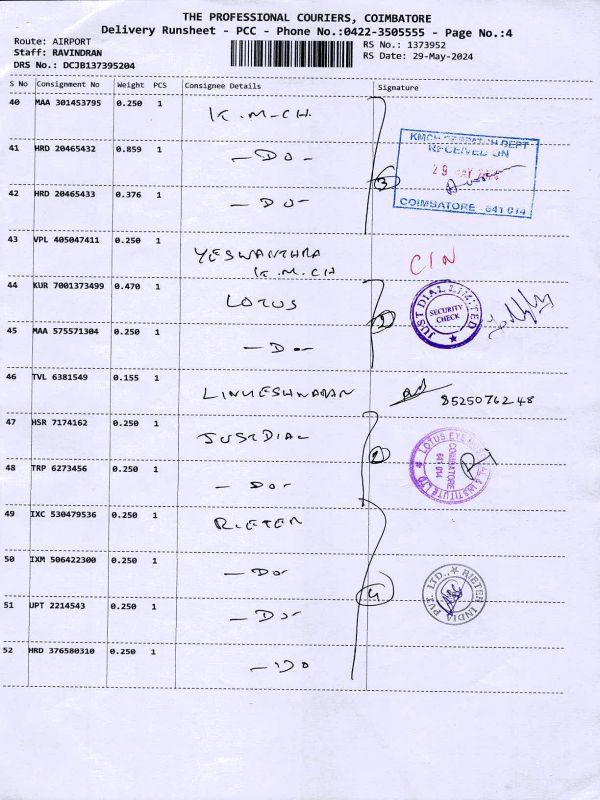 THE PROFESSIONAL COURIERS, COIMBATORE
Delivery Runsheet - PCC - Phone No.:0422-3505555 - Page No.:4
Route: AIRPORT
Staff: RAVINDRAN
DRS No.: DCJB137395204
RS No.: 1373952
RS Date: 29-May-2024
S No Consignment No Weight PCS Consignee Details Signature
40 MAA 301453795 0.250 1 K.M.CH
41 HRD 20465432 0.859 1 -DO-
42 HRD 20465433 0.376 1 -DO-
3
KMCH DESPATCH DEPT
RECEIVED ON
29 MAY
COIMBATORE - 641 014
43 VPL 405047411 0.250 1 YESWANTHRA
K.M.CH
44 KUR 7001373499 0.470 1 LOTUS
45 MAA 575571304 0.250 1 -DO-
2
JUST DIAL LIMITED
SECURITY
CHECK
46 TVL 6381549 0.155 1 LINKESHWARAN 8525076248
47 HSR 7174162 0.250 1 JUSTDIAL
48 TRP 6273456 0.250 1 -DO-
LOTUS EYE & INSTITUTE LTD
COIMBATORE
641 014
49 IXC 530479536 0.250 1 RIETER
50 IXM 506422300 0.250 1 -DO-
51 UPT 2214543 0.250 1 -DO-
52 HRD 376580310 0.250 1 -DO
4
RIETER INDIA PVT. LTD.,